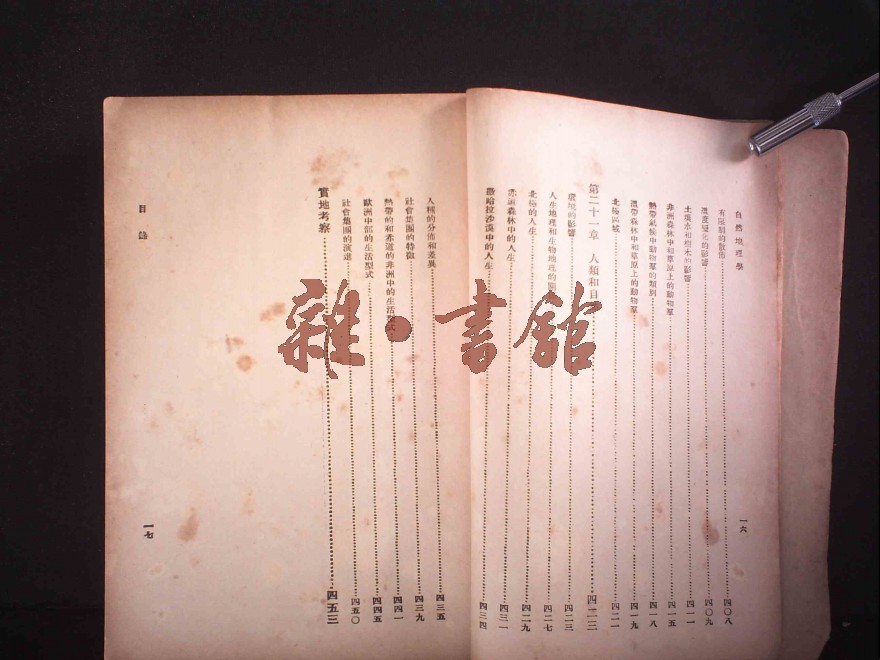 自然地理學
一六
有限制的散佈 四〇八
溫度變化的影響 四〇九
土壤水和樹木的影響 四一一
非洲森林中和草原上的動物羣 四一五
熱帶氣候中動物羣的類別 四一八
溫帶森林中和草原上的動物羣 四一九
北極區域 四二一
第二十一章 人類和自 四二三
環境的影響 四二三
人生地理和生物地理的關 四二七
北極的人生 四二九
赤道森林中的人生 四三一
撒哈拉沙漠中的人生 四三四
人種的分佈和差異 四三五
社會集團的特徵 四三九
熱帶的和赤道的非洲中的生活型式 四四一
歐洲中部的生活型式 四四五
社會集團的演進 四五〇
實地考察 四五三
目錄
一七
雜·書館